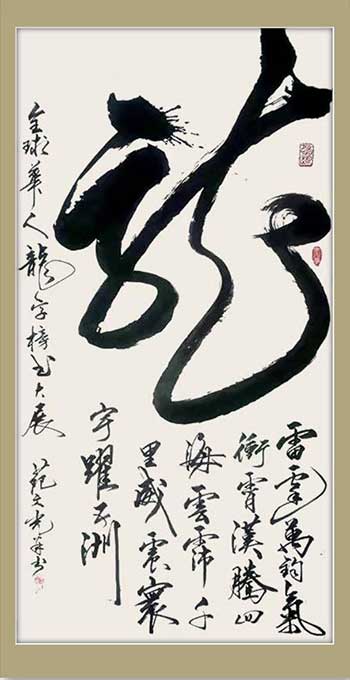 龍
雷霆萬鈞氣
衝霄漢騰四
海雲霈千
里威震寰
宇躍五洲
全球華人龍字榜书大展
範文光